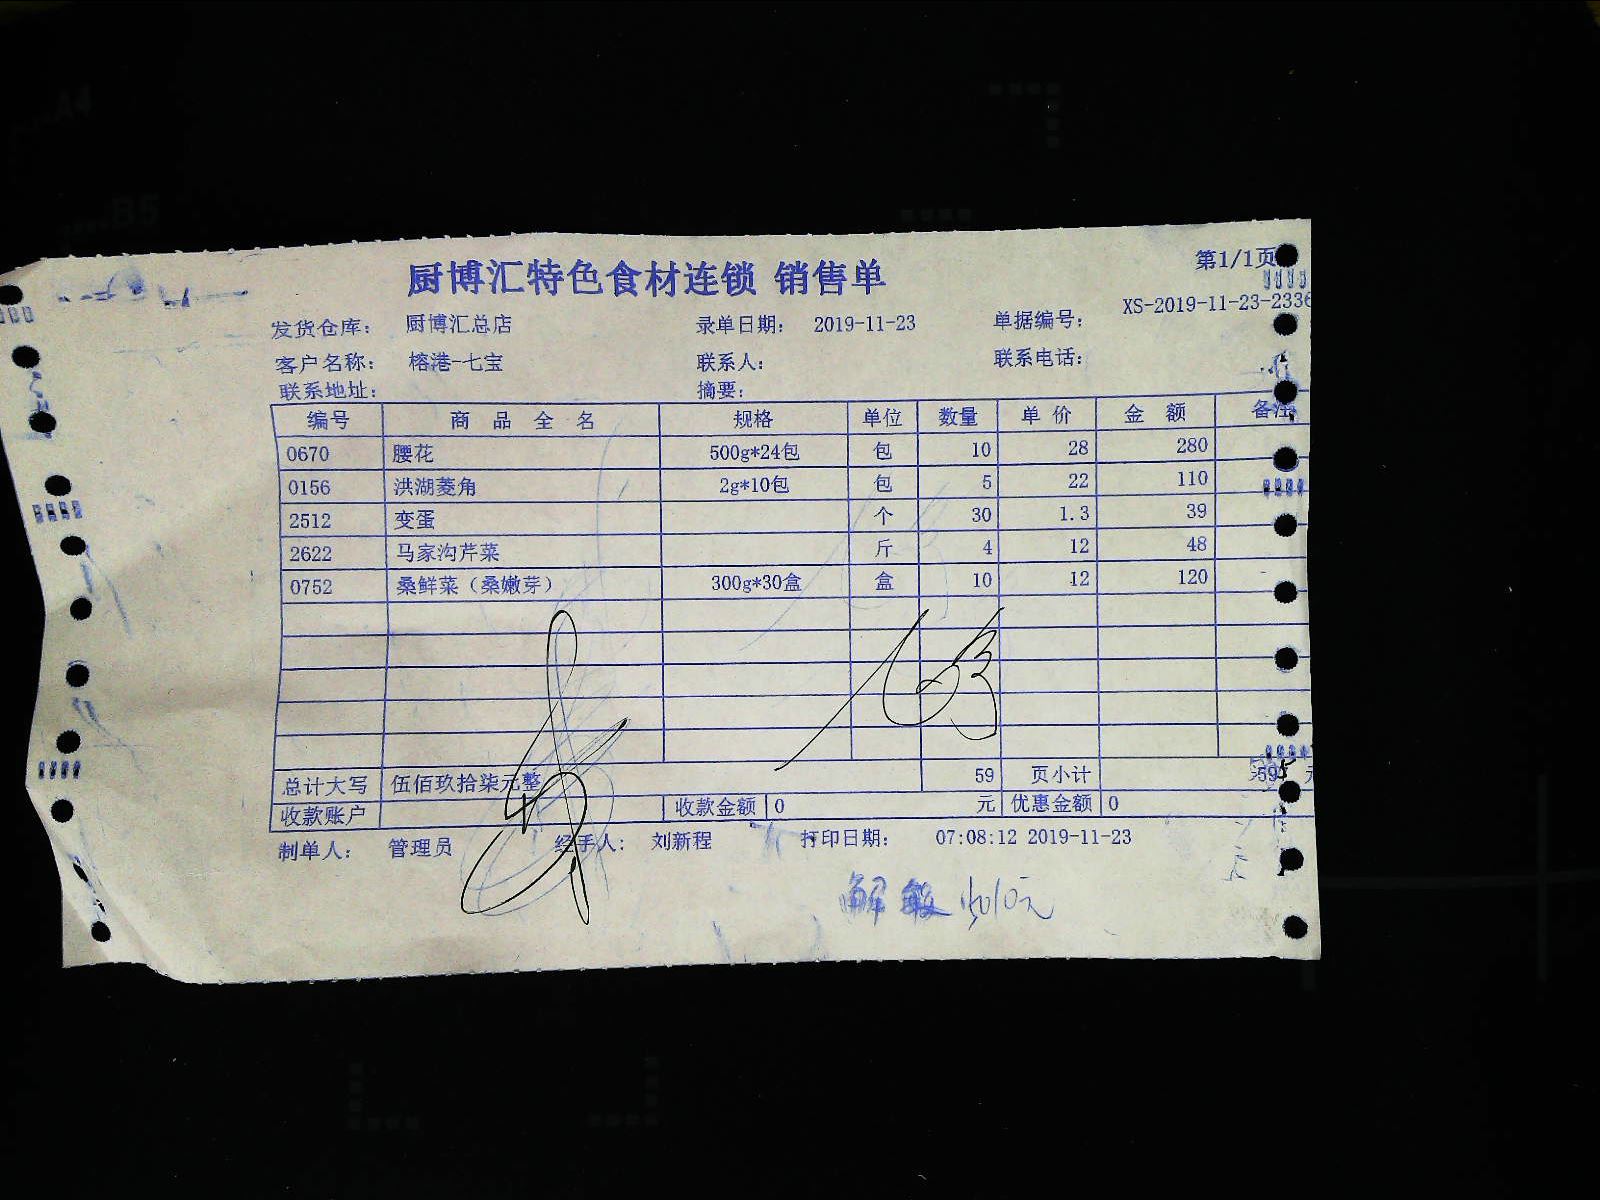 厨博汇特色食材连锁 销售单
第1/1页
发货仓库: 厨博汇总店 录单日期: 2019-11-23 单据编号: XS-2019-11-23-2336
客户名称: 榕港-七宝 联系人: 联系电话:
联系地址: 摘要:
编号 商品全名 规格 单位 数量 单价 金额 备注
0670 腰花 500g*24包 包 10 28 280
0156 洪湖菱角 2g*10包 包 5 22 110
2512 变蛋 个 30 1.3 39
2622 马家沟芹菜 斤 4 12 48
0752 桑鲜菜（桑嫩芽） 300g*30盒 盒 10 12 120
总计大写 伍佰玖拾柒元整 59 页小计 元
收款账户 收款金额 0 元 优惠金额 0
制单人: 管理员 经手人: 刘新程 打印日期: 07:08:12 2019-11-23